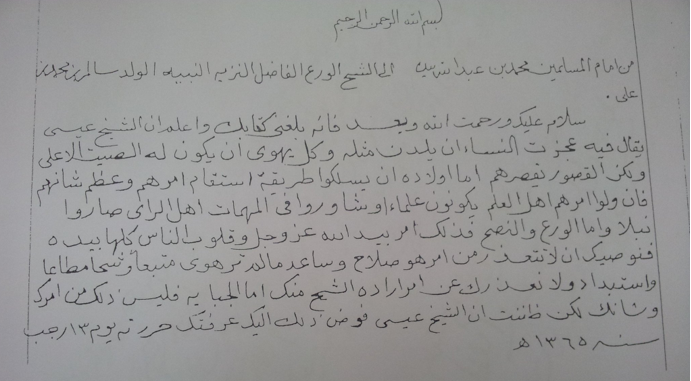 بسم الله الرحمن الرحيم
من امام المسلمين محمد بن عبدالله بيده الى الشيخ الورع الفاضل النزيه النبيه الولد سالم بن محمد بن
على .
سلام عليكم ورحمت الله وبعد فانه بلغني كتابك واعلم ان الشيخ عيسى
يقال فيه عجزت النساء ان يلدن مثله وكل يهوى أن يكون له الصيت الاعلى
ولكن القصور تقصرهم اما اولاده ان يسلكوا طريقة استقام امرهم وعظم شانهم
فان ولوا امرهم اهل العلم يكونون علماء او شاوروا في المهمات اهل الراى صاروا
نبلا واما الورع والنصح فذلك امر بيد الله عز وجل وقلوب الناس كلها بيده
فنوصيك ان لا تتعذر من امر هو صلاح وساعد مالم تر هوى متبعا وشحا مطاعا
واستبداد ولا نعذرك عن امر اراده الشيخ منك اما الجبايه فليس ذلك من امرك
وشانك لكن ظننت ان الشيخ عيسى فوض ذلك اليك عرفتك حررته يوم ١٣ رجب
سنه ١٣٦٥ ه